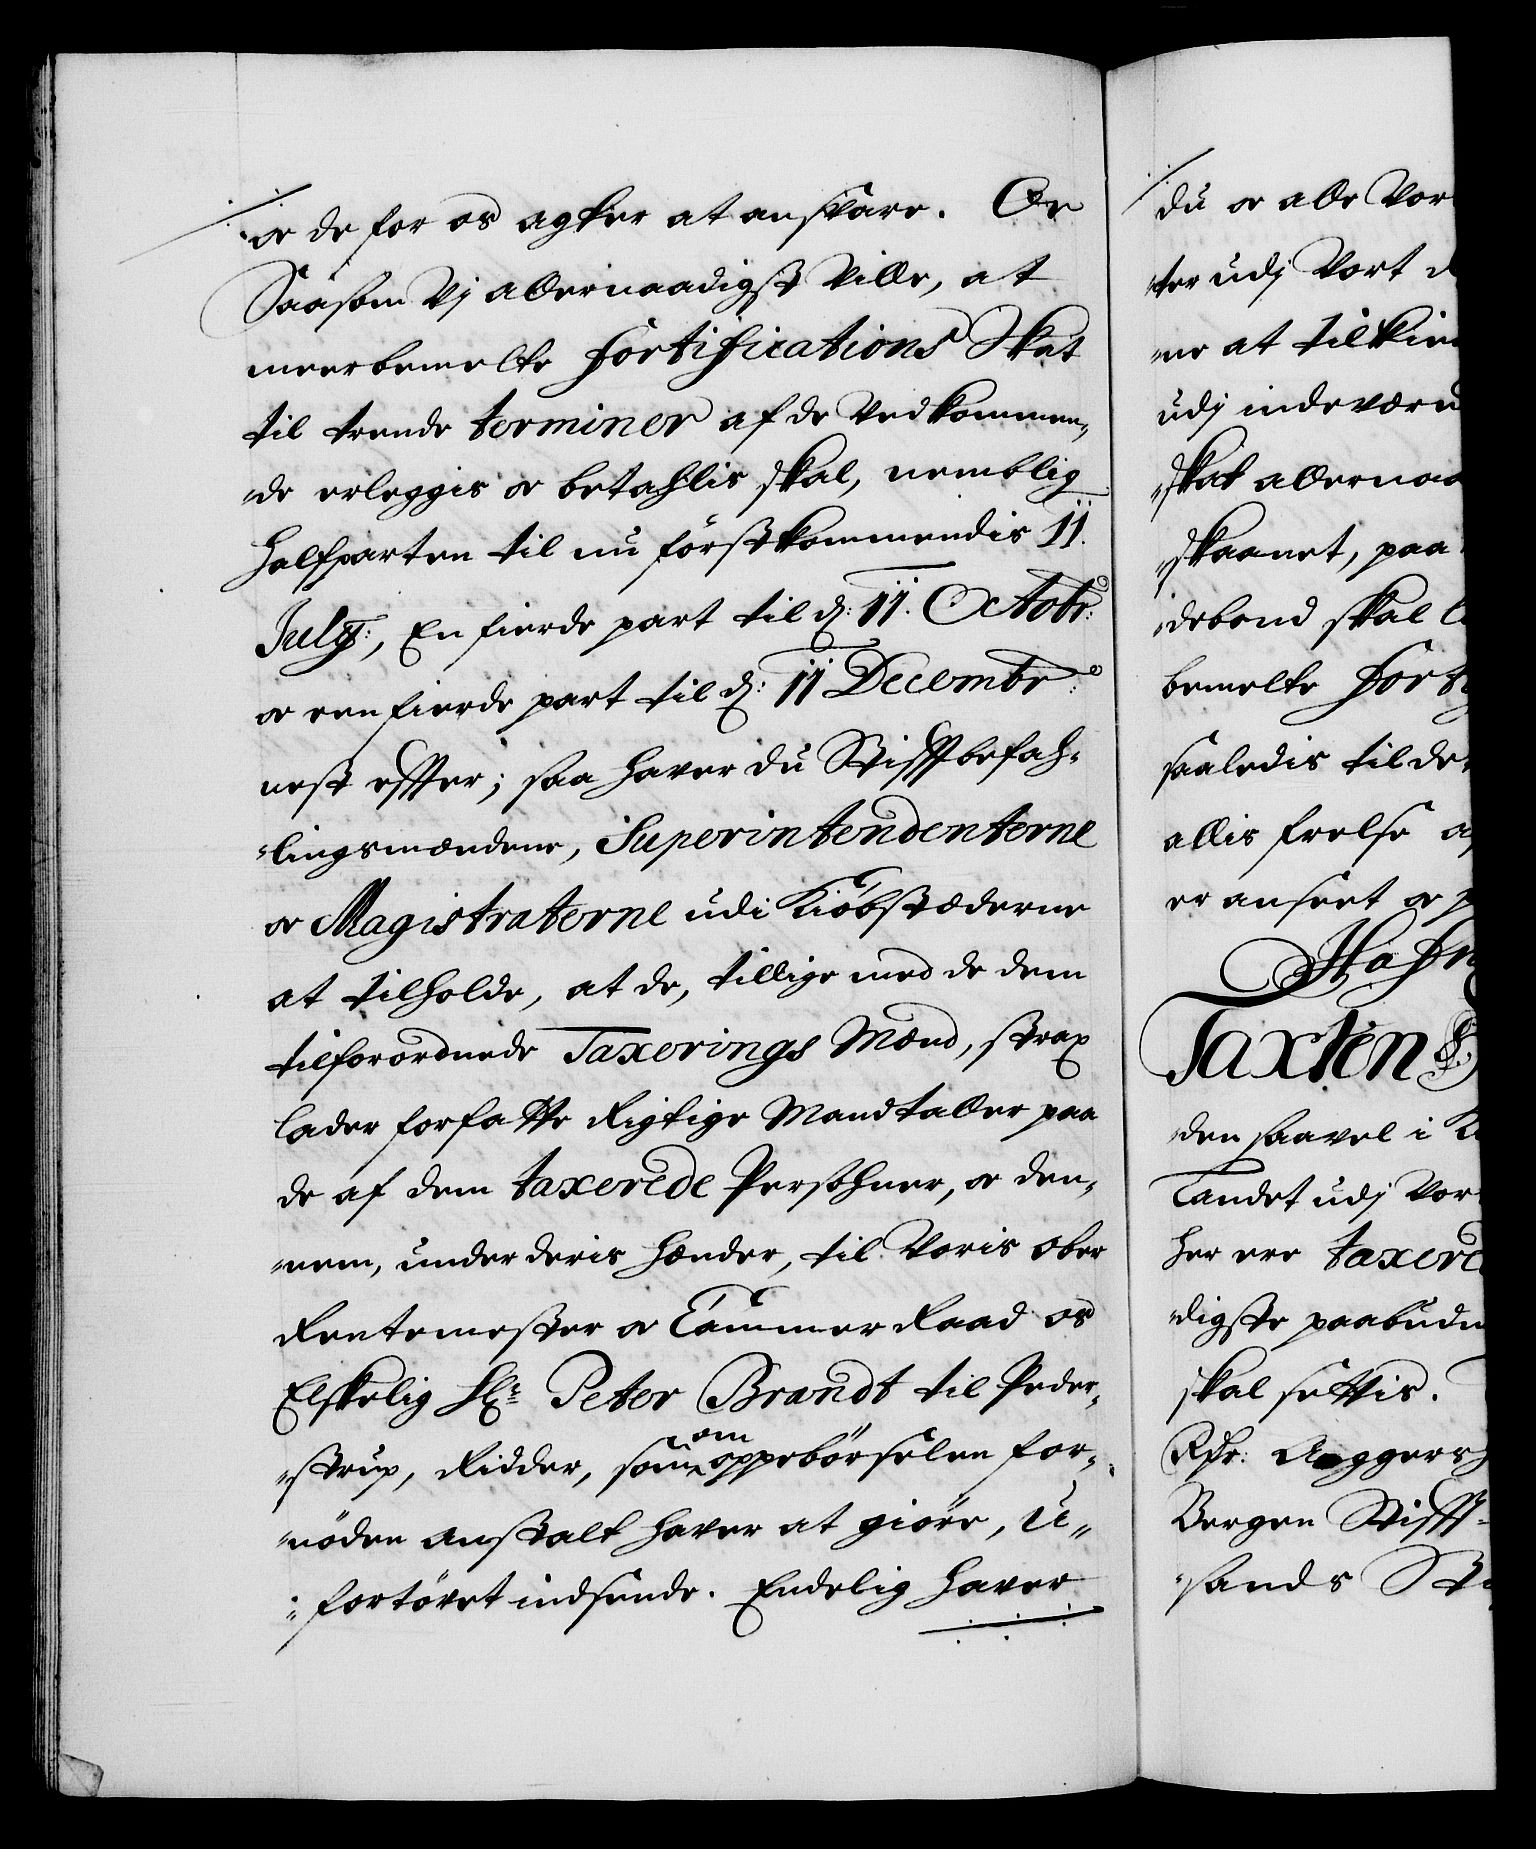 og de for os agter at ansvare. Og
Saasom Vj allernaadigst Ville, at
meerbemelte Fortifications Skat
til trende terminer af de Vedkommen„
„de erleggis og betahlis skal, nemblig
Halfparten til nu förstkommendis 11.
Julij:, En fierde part til d: 11. Octobr:
og een fierde part til d: 11 Decembr:
nest effter; saa haver du Stifftbefah-
„lingsmændene, Superintendenterne
og Magistraterne udi Kiöbstæderne
at tilholde, at de, tillige med de dem
tilforordnede Taxerings Mænd, strax
lader forfatte Rigtige Mandtaller paa
de af dem taxerede Persohner, og den„
„nem, under deris Hænder, til Voris Ober
Rentemester og Cammer Raad os
Elskelig Hr: Peter Brandt til Peder„
„strup, Ridder, som om oppebörselen for„
„nöden anstalt haver at giöre, U„
„fortövet indsende. Endelig haver
du og alle Vor
„ter udj Vort
„ne at tilkien
udj indeværu
„skat allernaa
„skaanet, paa
„debond skal
bemelte Forti
saaledis til de
allis frelse
er anseet og
Hafn
Taxten
„den saavel i
Landet udj Vor
her ere taxere
„digste paabudn
skal settis.
Rfr: Aggers
Bergen Stifft-
„sands Sti